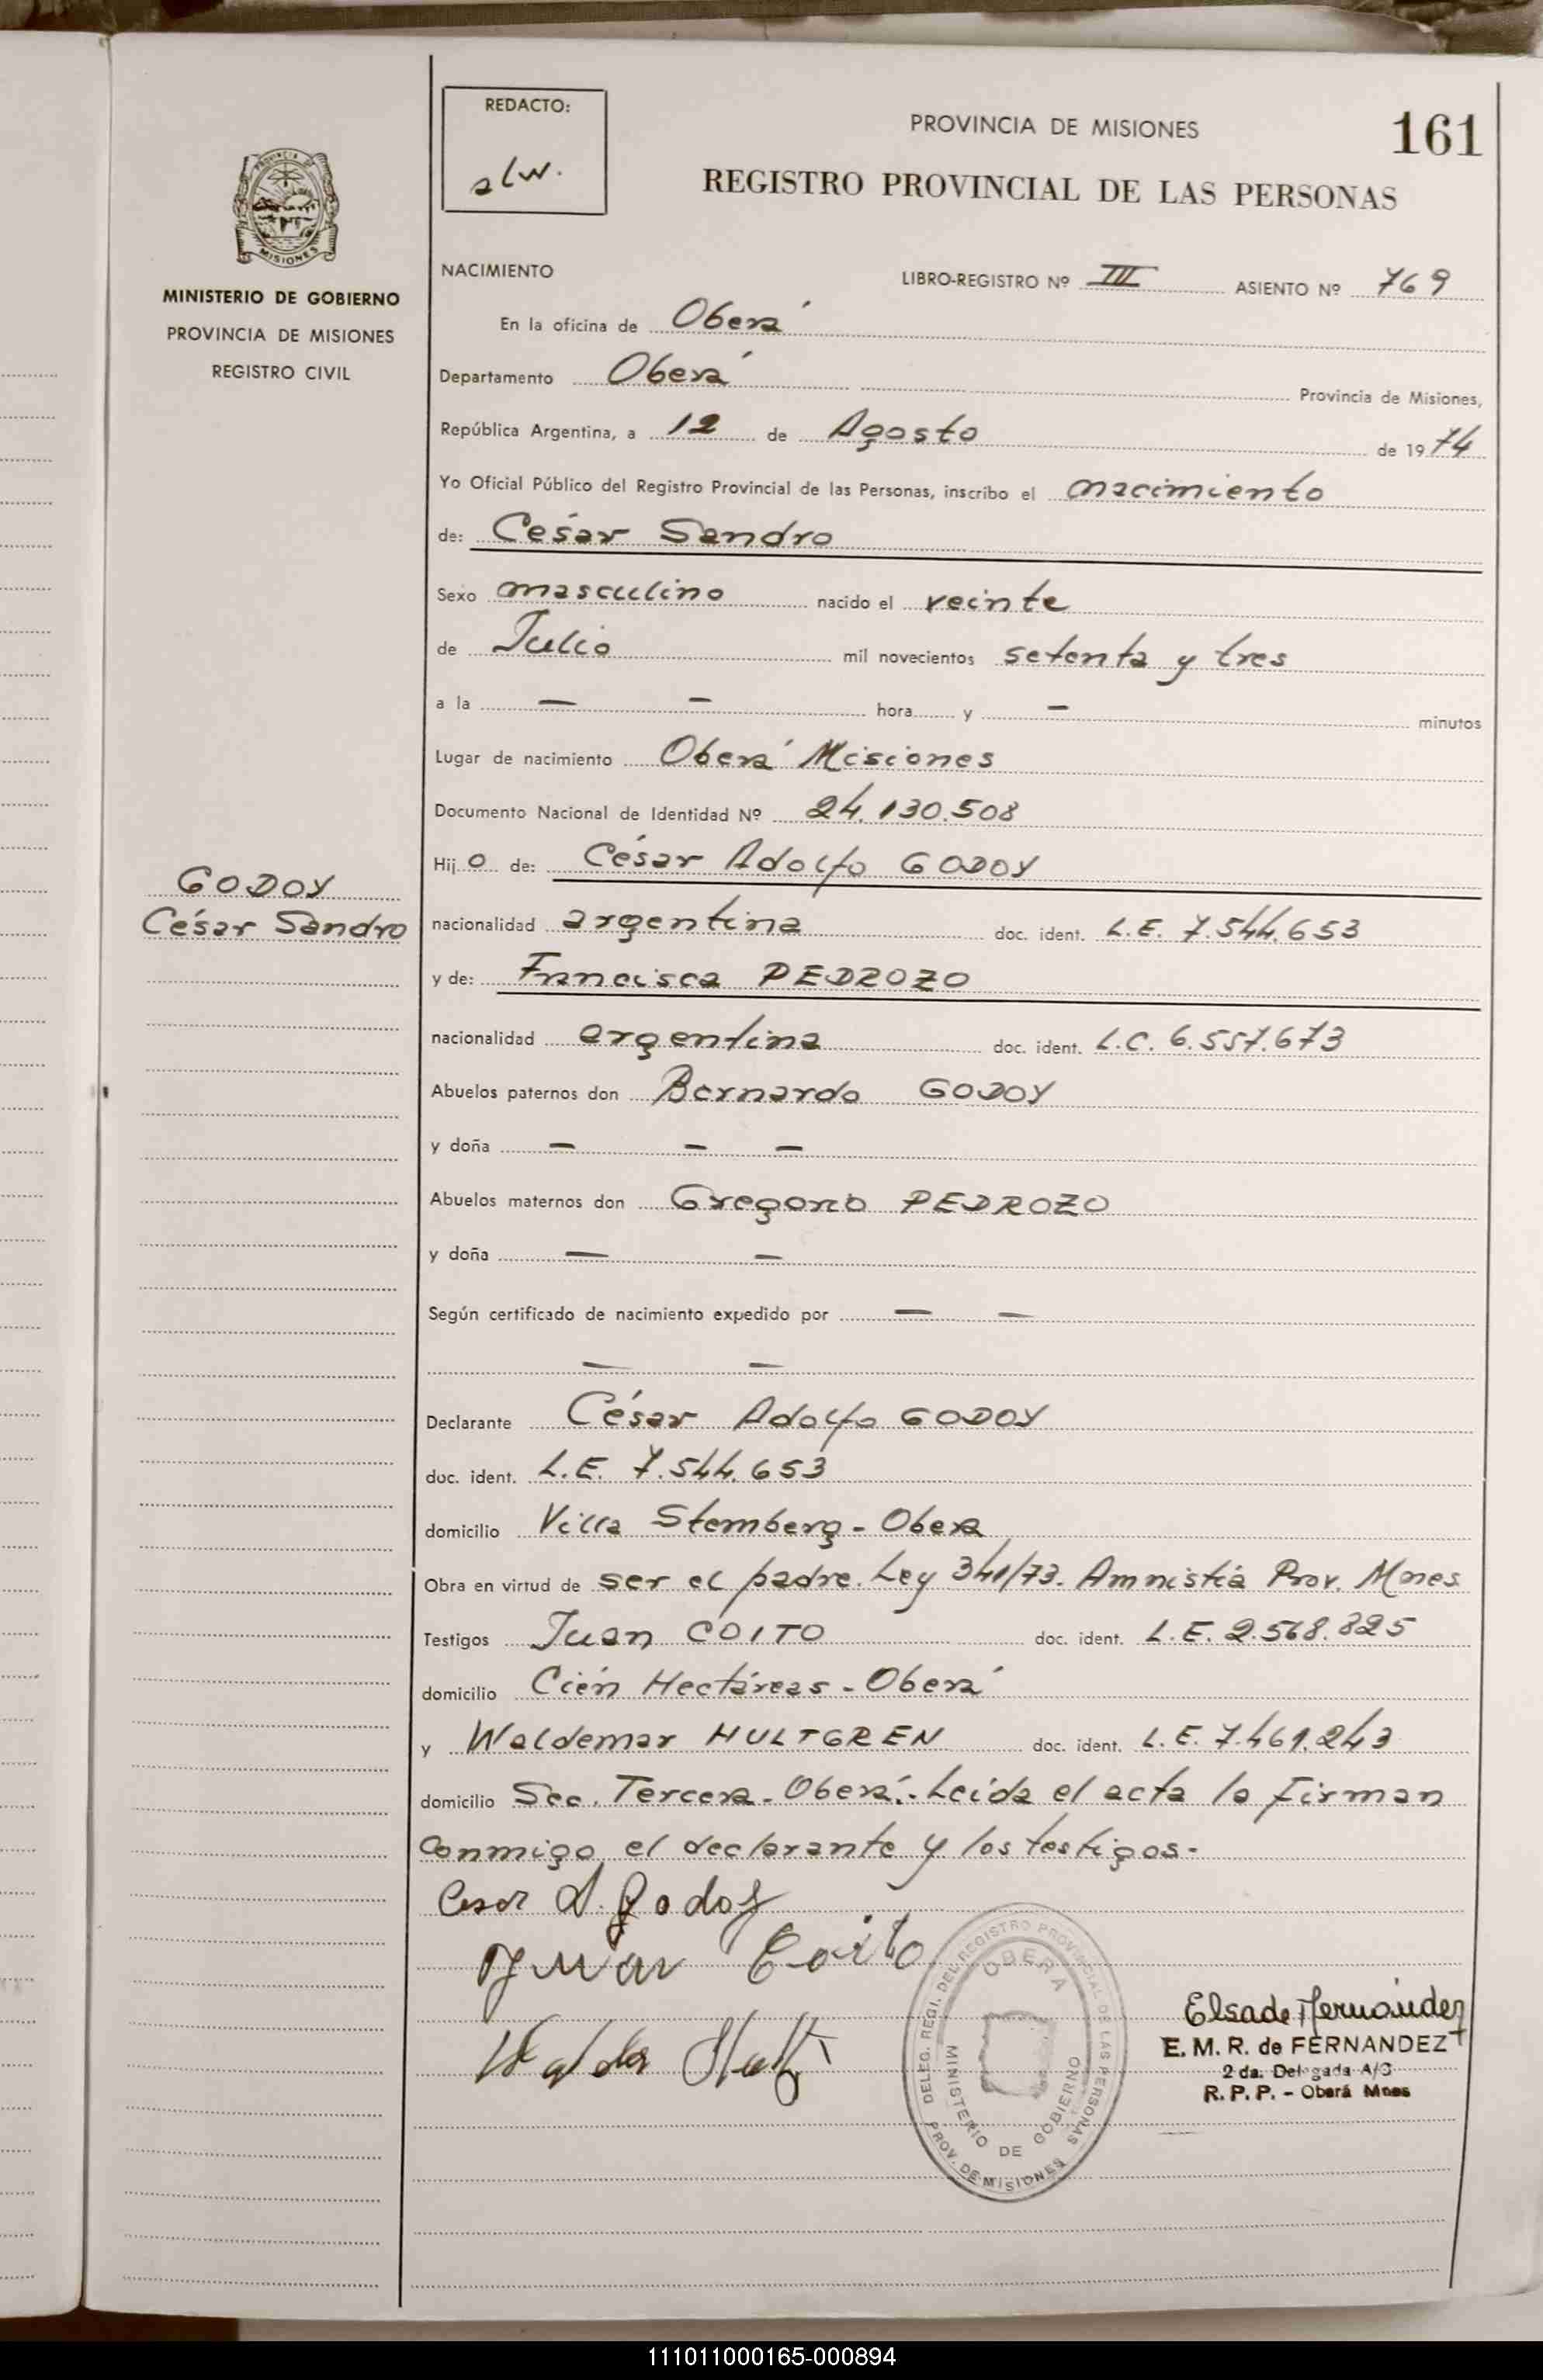 REDACTO:
alw.
PROVINCIA DE MISIONES
161
REGISTRO PROVINCIAL DE LAS PERSONAS
PROVINCIA DE
MISIONES
MINISTERIO DE GOBIERNO
PROVINCIA DE MISIONES
REGISTRO CIVIL
NACIMIENTO LIBRO-REGISTRO Nº III ASIENTO Nº 769
En la oficina de Oberá
Departamento Oberá Provincia de Misiones,
República Argentina, a 12 de Agosto de 1974
Yo Oficial Público del Registro Provincial de las Personas, inscribo el nacimiento
de: César Sandro
Sexo masculino nacido el veinte
de Julio mil novecientos setenta y tres
a la — — hora y — minutos
Lugar de nacimiento Oberá Misiones
Documento Nacional de Identidad Nº 24.130.508
Hijo de: César Adolfo GODOY
GODOY
César Sandro
nacionalidad argentina doc. ident. L.E. 7.544.653
y de: Francisca PEDROZO
nacionalidad argentina doc. ident. L.C. 6.557.673
Abuelos paternos don Bernardo GODOY
y doña — — —
Abuelos maternos don Gregorio PEDROZO
y doña — —
Según certificado de nacimiento expedido por — —
— —
Declarante César Adolfo GODOY
doc. ident. L.E. 7.544.653
domicilio Villa Stemberg - Obera
Obra en virtud de ser el padre. Ley 341/73. Amnistía Prov. Mnes
Testigos Juan COITO doc. ident. L.E. 2.568.825
domicilio Cién Hectáreas - Oberá
y Waldemar HULTGREN doc. ident. L.E. 7.461.243
domicilio Sec. Tercera - Oberá.- Leída el acta la firman
conmigo el declarante y los testigos.-
Cesar A. Godoy
Juan Coito
DELEG. REGI. DEL REGISTRO PROVINCIAL DE LAS PERSONAS
OBERA
MINISTERIO DE GOBIERNO
PROV. DE MISIONES
Elsa de Fernández
E. M. R. de FERNANDEZ
2 da. Delegada A/C
R. P. P. - Oberá Mnes
111011000165-000894